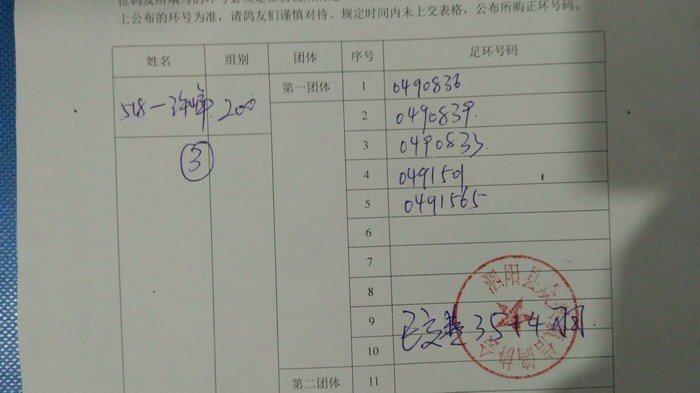 上公布的环号为准，请鸽友们谨慎对待。规定时间内未上交表格，公布所购正环号码。
姓名 组别 团体 序号 足环号码
518一 200 第一团体 1 0490836
2 0490839.
③ 3 0490833.
4 0491501
5 0491565
6
7
8
9 35 4
10
第二团体 11
泗阳县 信鸽协会